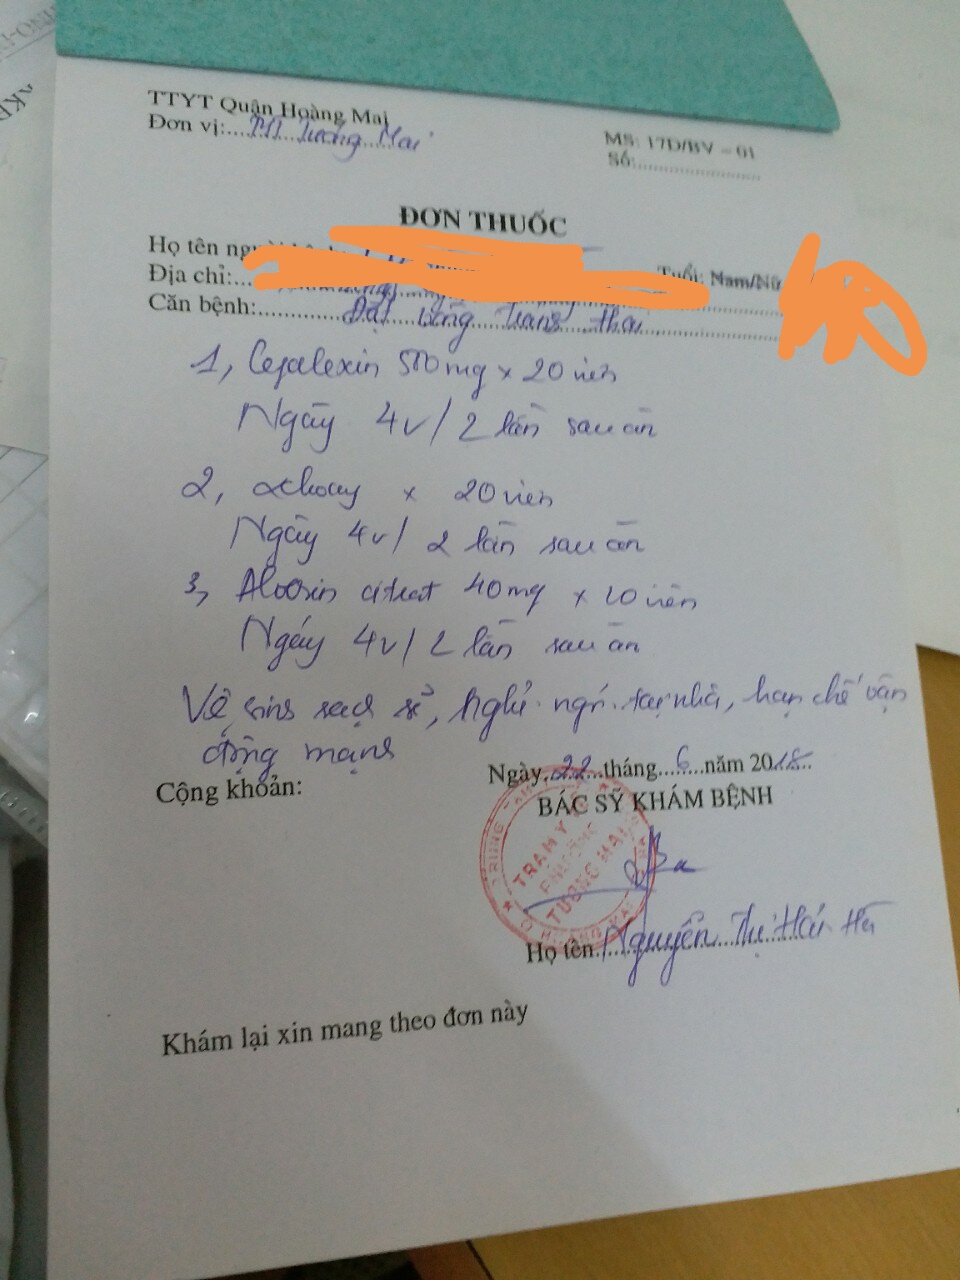 TTYT Quận Hoàng Mai
Đơn vị:.... Tương Mai
MS: 17D/BV - 01
Số:
ĐƠN THUỐC
Họ tên
Tuổi: Nam/Nữ
Địa chỉ:
Căn bệnh: Đặt vòng tránh thai
1, Cefalexin 500mg x 20 viên
Ngày 4v/2 lần sau ăn
2, αchoay x 20 viên
Ngày 4v/2 lần sau ăn
3, citrat 40mg x 20 viên
Ngày 4v/2 lần sau ăn
Vệ sinh sạch sẽ, Nghỉ ngơi tại nhà, hạn chế vận
động mạnh
Ngày 22 tháng 6 năm 2018
Cộng khoản:
BÁC SỸ KHÁM BỆNH
TRẠM Y TẾ
PHƯỜNG
TƯƠNG MAI
Q HOÀNG MAI
Họ tên Nguyễn Thị Hải Hà
Khám lại xin mang theo đơn này